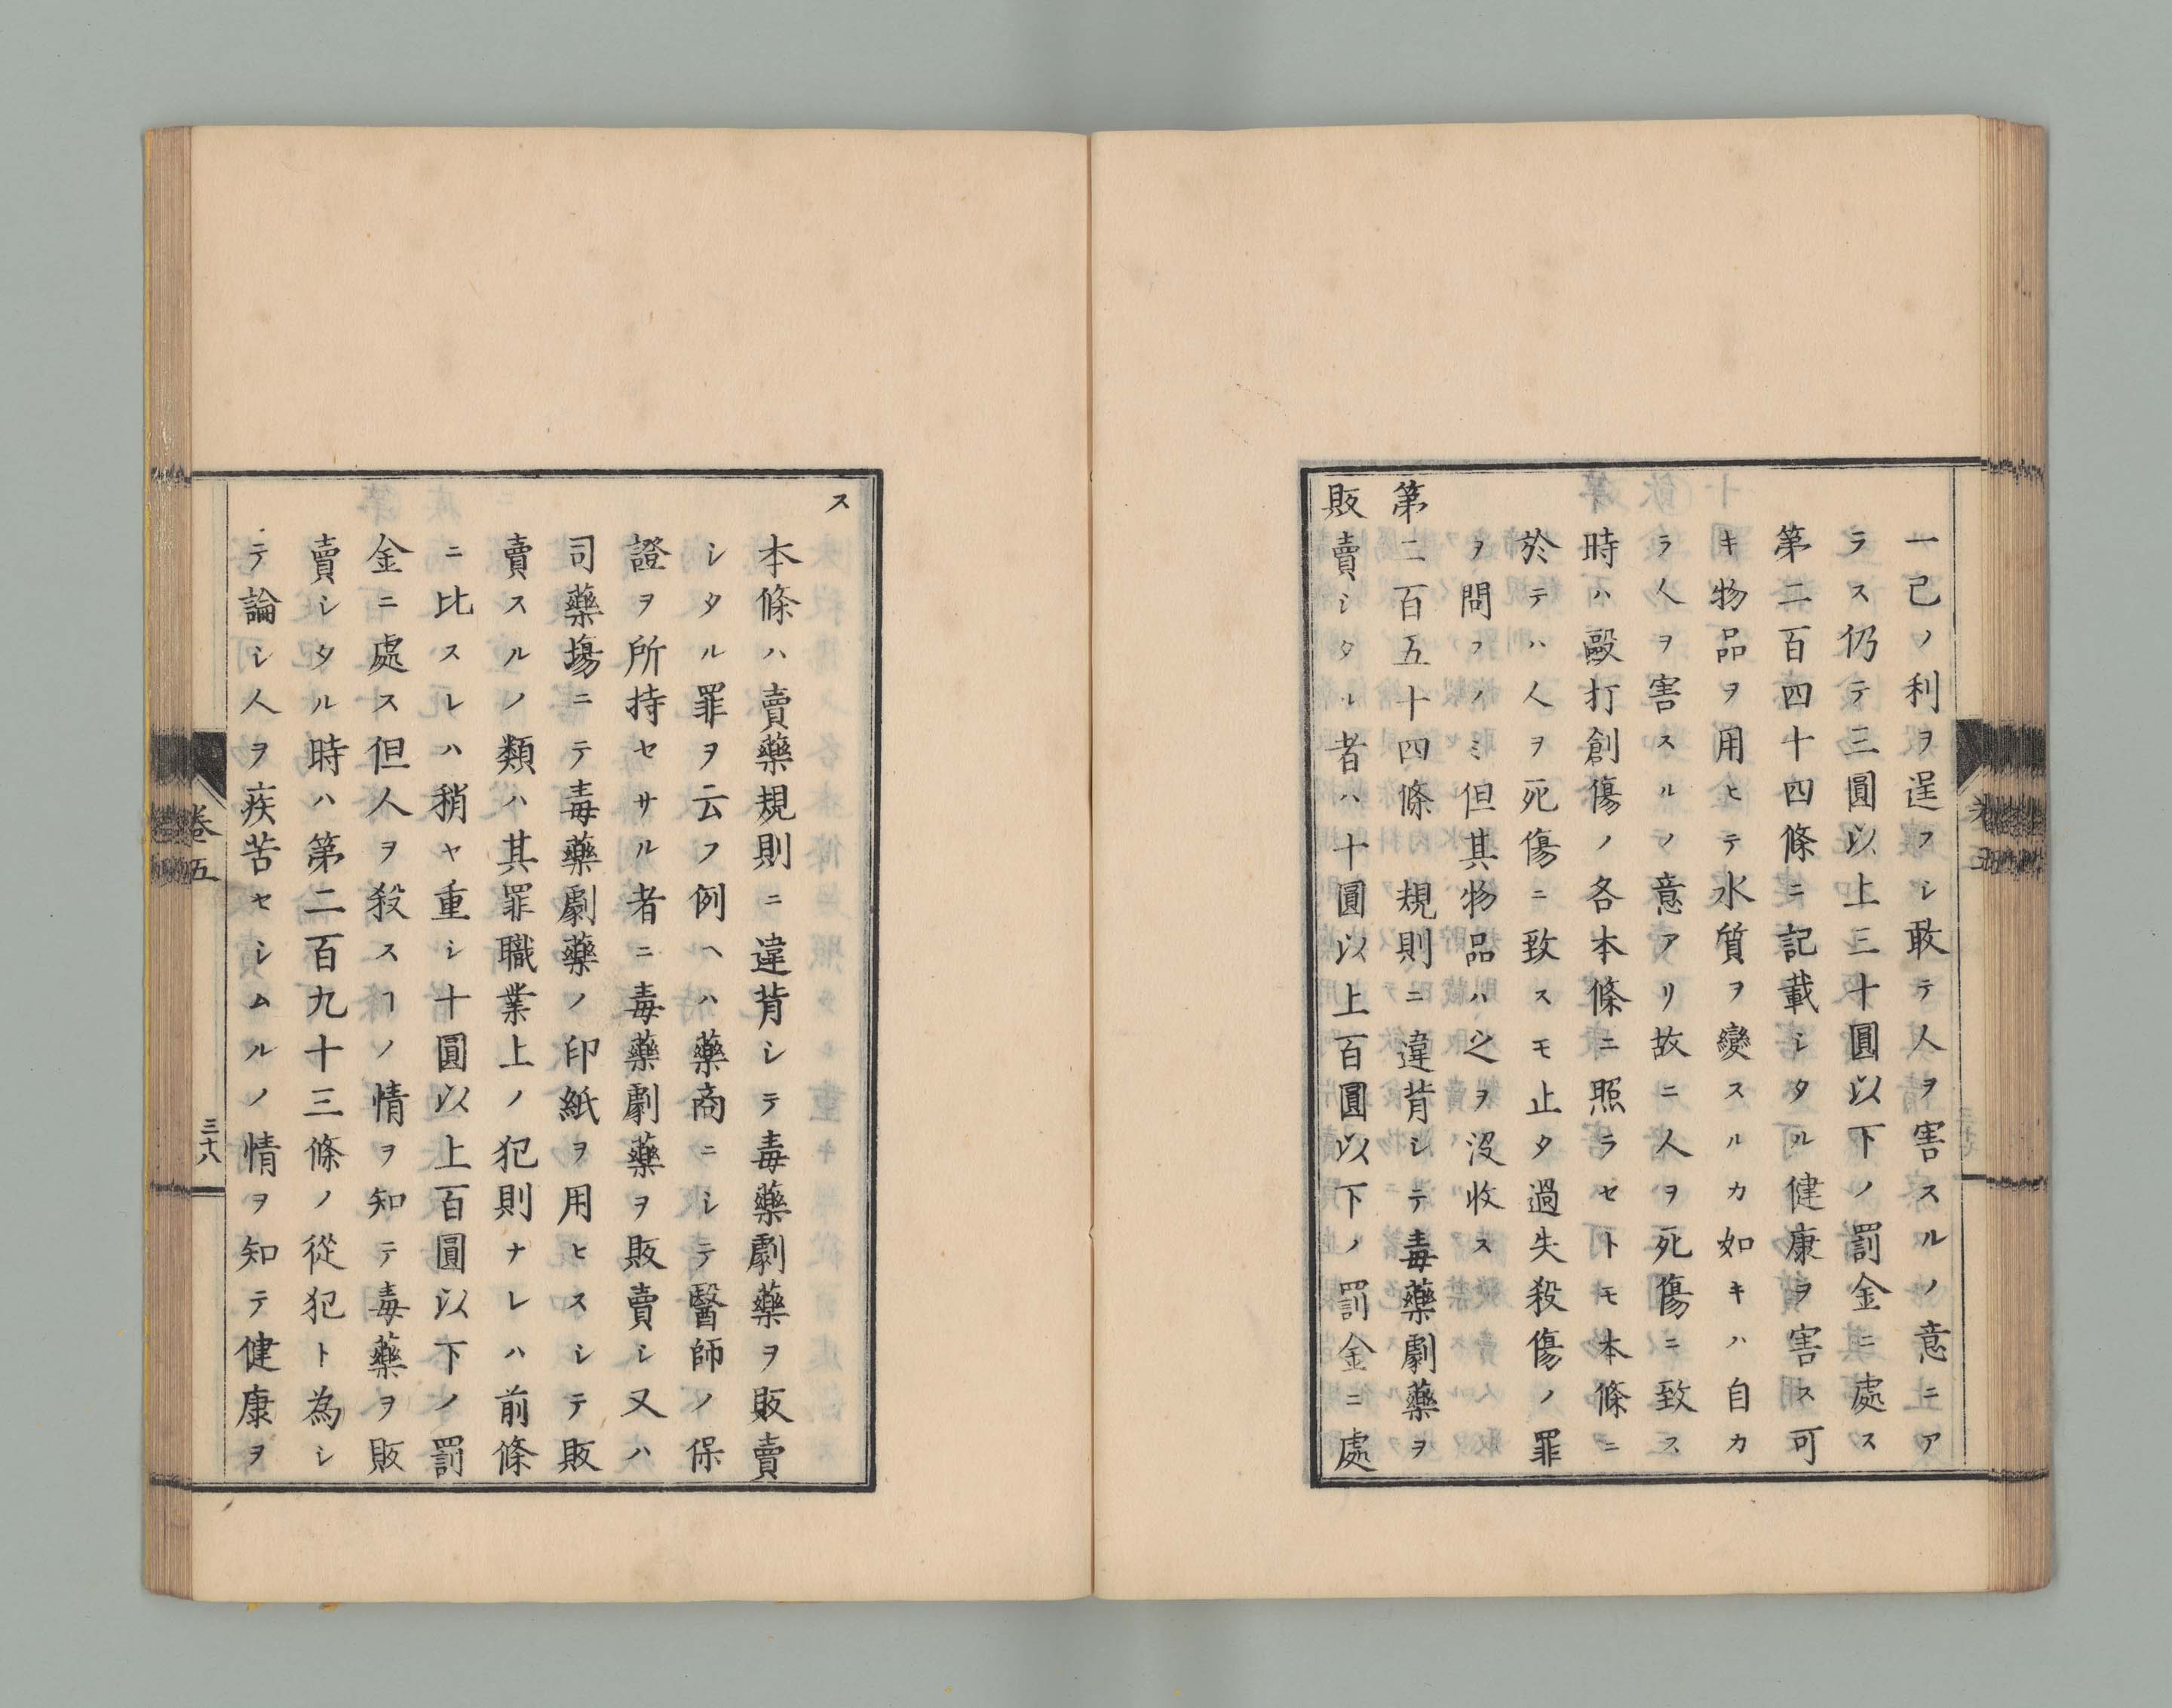 一己ノ利ヲ逞フシ敢テ人ヲ害スルノ意ニア
ラス仍テ三圓以上三十圓以下ノ罰金ニ處ス
第二百四十四條ニ記載シタル健康ヲ害ス可
キ物品ヲ用ヒテ水質ヲ變スルカ如キハ自カ
ラ人ヲ害スルノ意アリ故ニ人ヲ死傷ニ致ス
時ハ毆打創傷ノ各本條ニ照ラセトモ本條ニ
於テハ人ヲ死傷ニ致スモ止タ過失殺傷ノ罪
ヲ問フノミ但其物品ハ之ヲ沒收ス
第二百五十四條 規則ニ違背シテ毒藥劇藥ヲ
販賣シタル者ハ十圓以上百圓以下ノ罰金ニ處
ス
本條ハ賣藥規則ニ違背シテ毒藥劇藥ヲ販賣
シタル罪ヲ云フ例ヘハ藥商ニシテ醫師ノ保
證ヲ所持セサル者ニ毒藥劇藥ヲ販賣シ又ハ
司藥場ニテ毒藥劇藥ノ印紙ヲ用ヒスシテ販
賣スルノ類ハ其罪職業上ノ犯則ナレハ前條
ニ比スレハ稍ヤ重シ十圓以上百圓以下ノ罰
金ニ處ス但人ヲ殺スヿノ情ヲ知テ毒藥ヲ販
賣シタル時ハ第二百九十三條ノ從犯ト為シ
テ論シ人ヲ疾苦セシムルノ情ヲ知テ健康ヲ
卷五
三十八